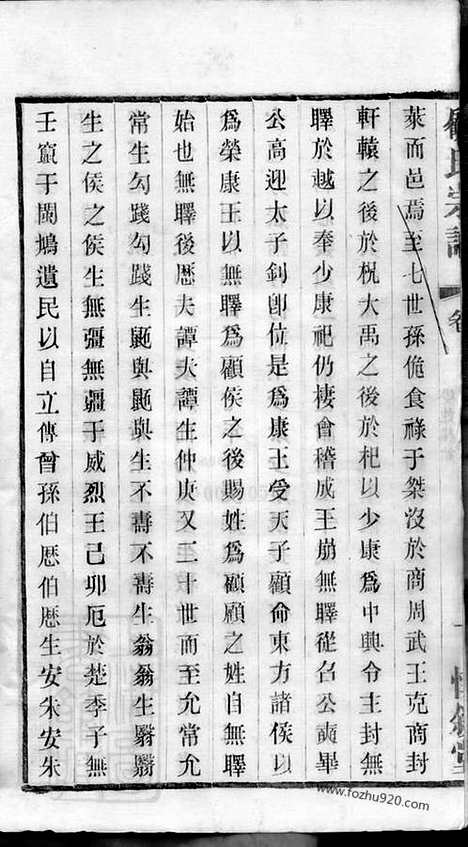 顧氏宗譜
卷
萊而邑焉至七世孫佹食祿于桀沒於商周武王克商封
軒轅之後於柷大禹之後於杞以少康爲中興令主封無
睪於越以奉少康祀仍棲會稽成王崩無睪從召公奭畢
公高迎太子釗卽位是爲康王受天子顧命東方諸侯以
爲榮康王以無睪爲顧侯之後賜姓爲顧顧之姓自無睪
始也無睪後歷夫譚夫譚生仲庚又二十世而至允常允
常生勾踐勾踐生鼫與鼫與生不壽不壽生翁翁生翳翳
生之侯之侯生無彊無彊于威烈王己卯厄於楚季子無
壬竄于閩鳩遺民以自立傳曾孫伯厯伯厯生安朱安朱
www.fozhu920.com